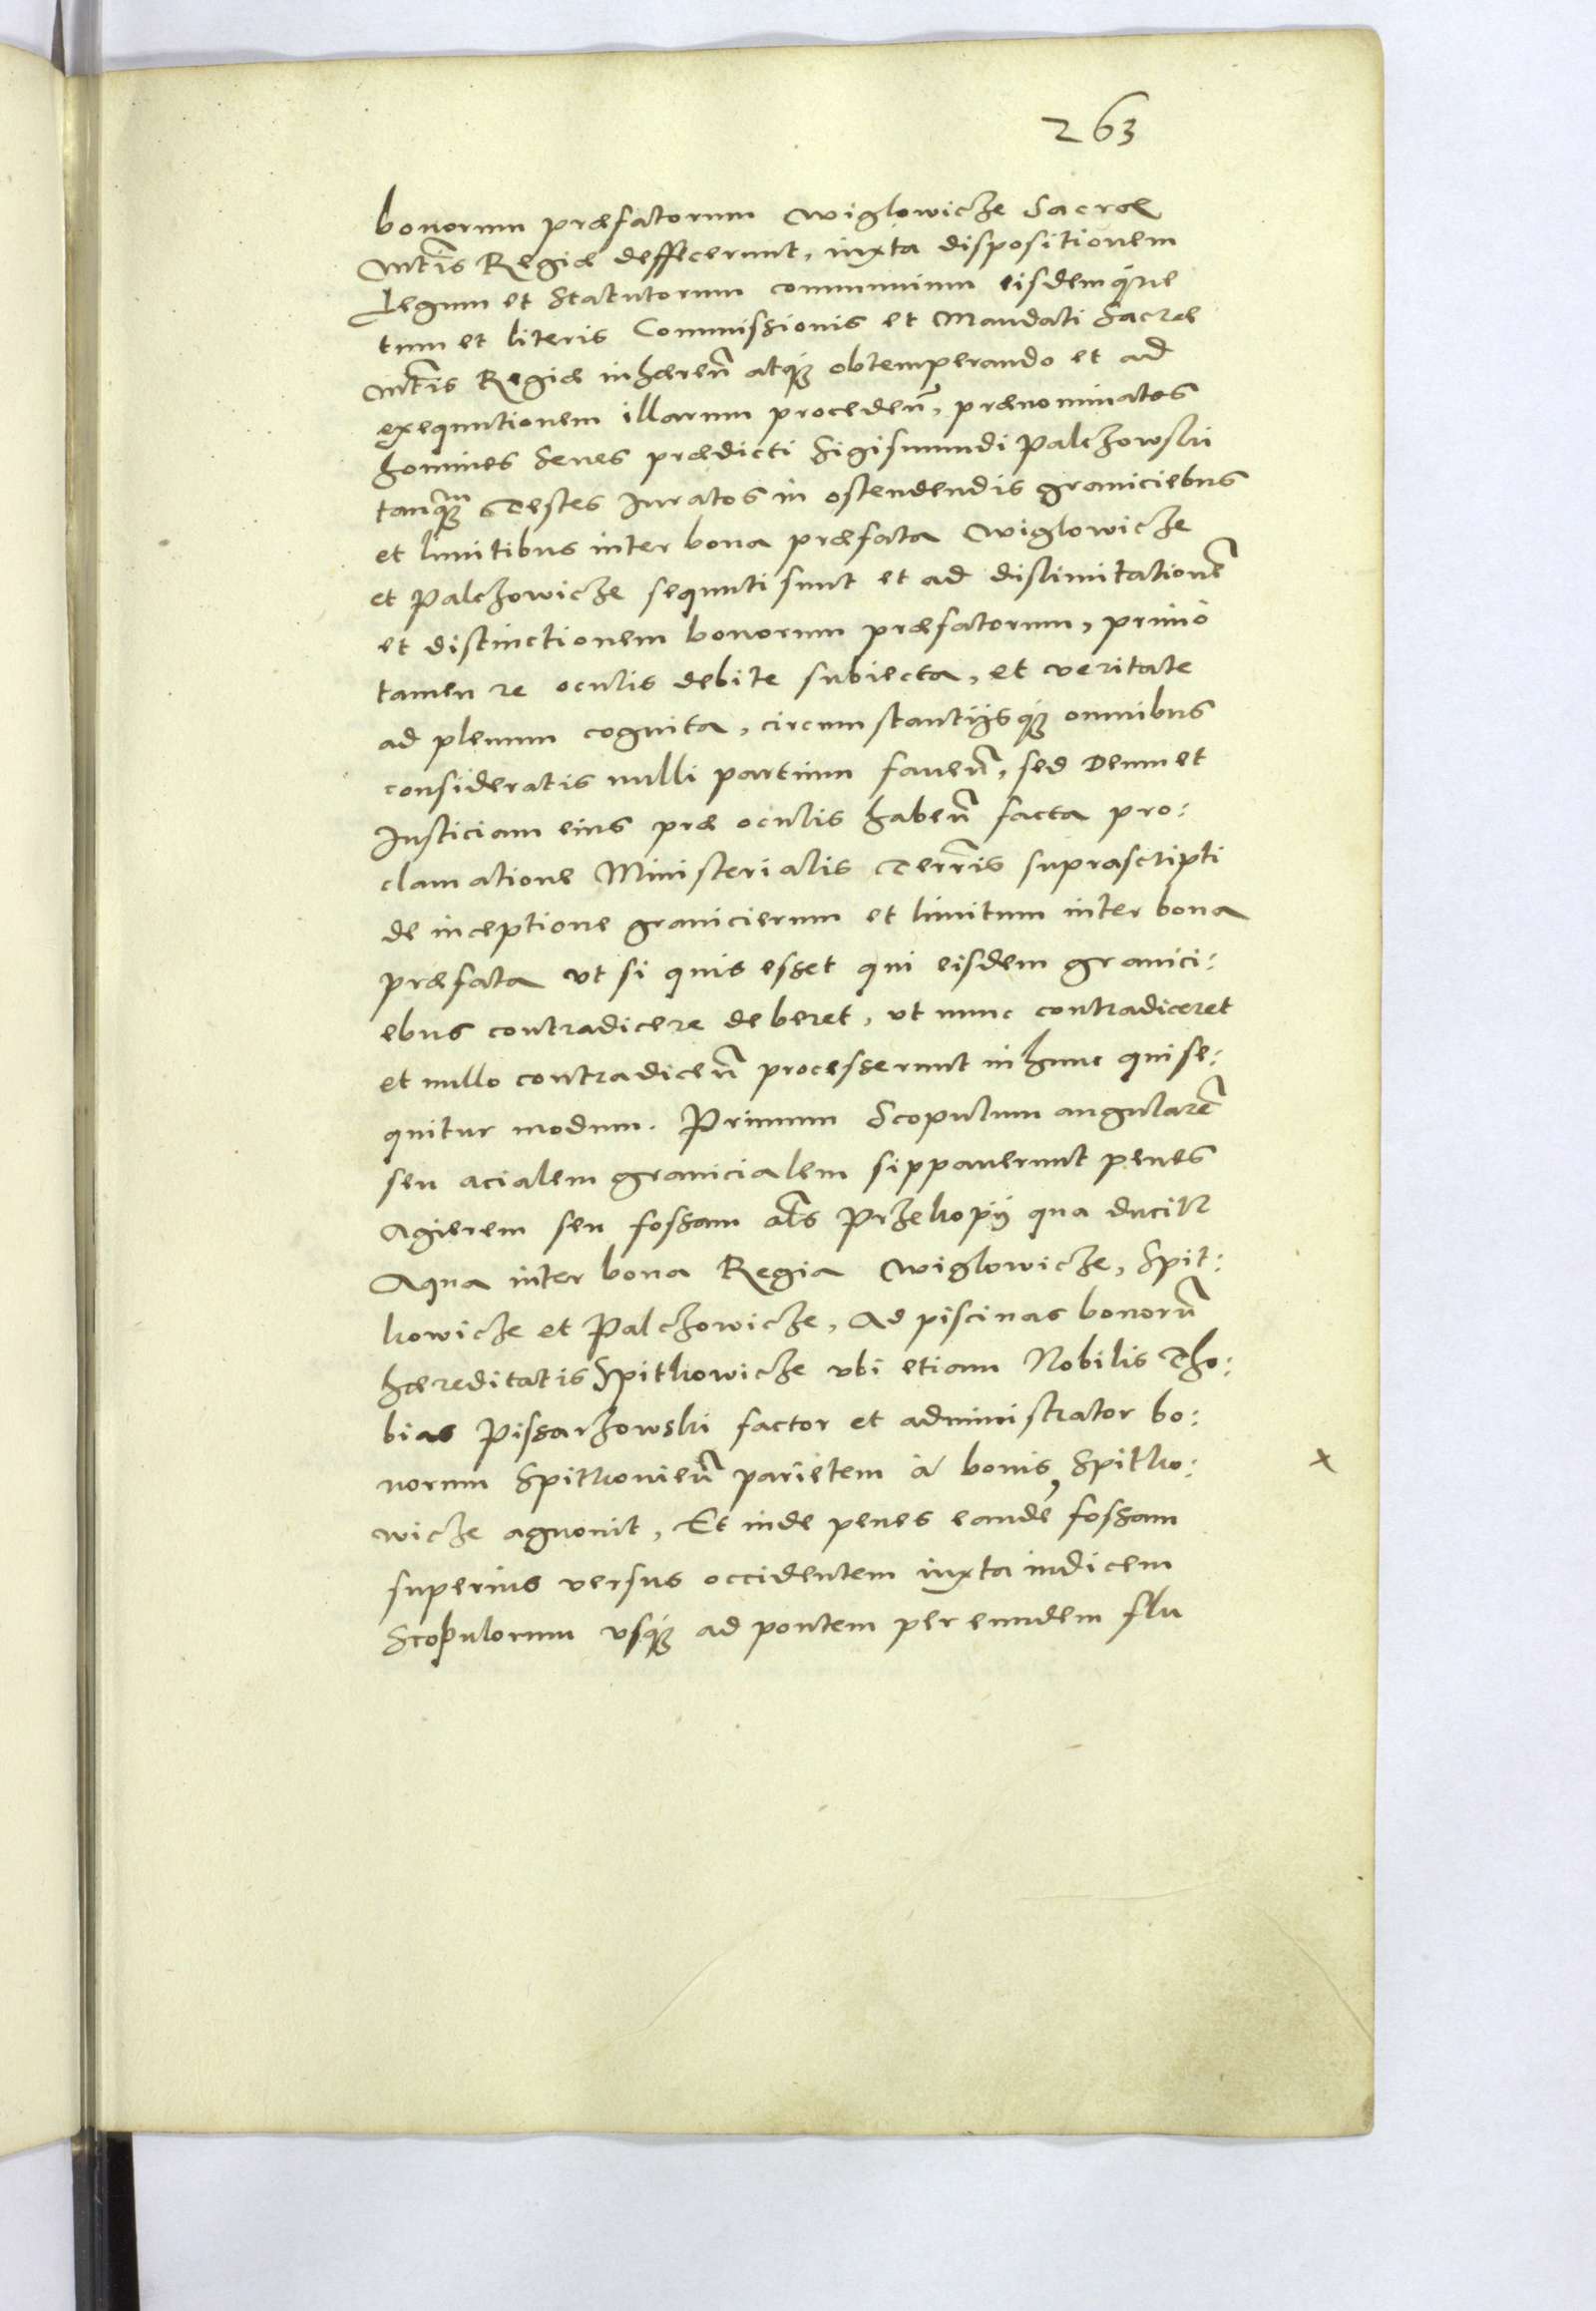 263
bonorum præfatorum Wiglowicze Sacræ
Mtis Regiæ deffecerunt, iuxta dispositionem
Legum et Statutorum communium eisdemque
tum et literis Commissionis et Mandati Sacræ
Mtis Regiæ inhæren̄ atq3 obtemperando et ad
exequutionem illarum proceden̄, prænominatos
homines Senes prædicti Sigismundi Palczowski
tanq3m Testes Iuratos in ostendendis graniciebus
et limitibus inter bona præfata Wiglowicze
et Palczowicze sequuti sunt et ad dislimitationē
et distinctionem bonorum præfatorum, primo
tamen re oculis debite subiecta, et veritate
ad plenum cognita, circumstantijsq3 omnibus
consideratis nulli partium faven̄, sed Deum et
Iusticiam eius præ oculis haben̄ facta pro:
clamatione Ministerialis Terr̄is suprascripti
de inceptione granicierum et limitum inter bona
præfata vt si quis esset qui eisdem granici:
ebus contradicere deberet, vt nunc contradiceret
et nullo contradicen̄ processerunt in hunc qui se:
quitur modum. Primum Scopulum angularē
seu acialem granicialem sippaverunt penes
Agierem seu fossam al̄s Przekopij qua ducitr
Aqua inter bona Regia Wiglowicze, Spit:
kowicze et Palczowicze, Ad piscinas bonorū
hæreditatis Spitkowicze vbi etiam Nobilis Tho:
bias Pissarzowski factor et administrator bo:
norum Spitkovien̄ parietem à bonis Spitko: x
wicze agnovit, Et inde penes eandē fossam
superius versus occidentem iuxta indicem
Scopulorum vsq3 ad pontem per eundem flu